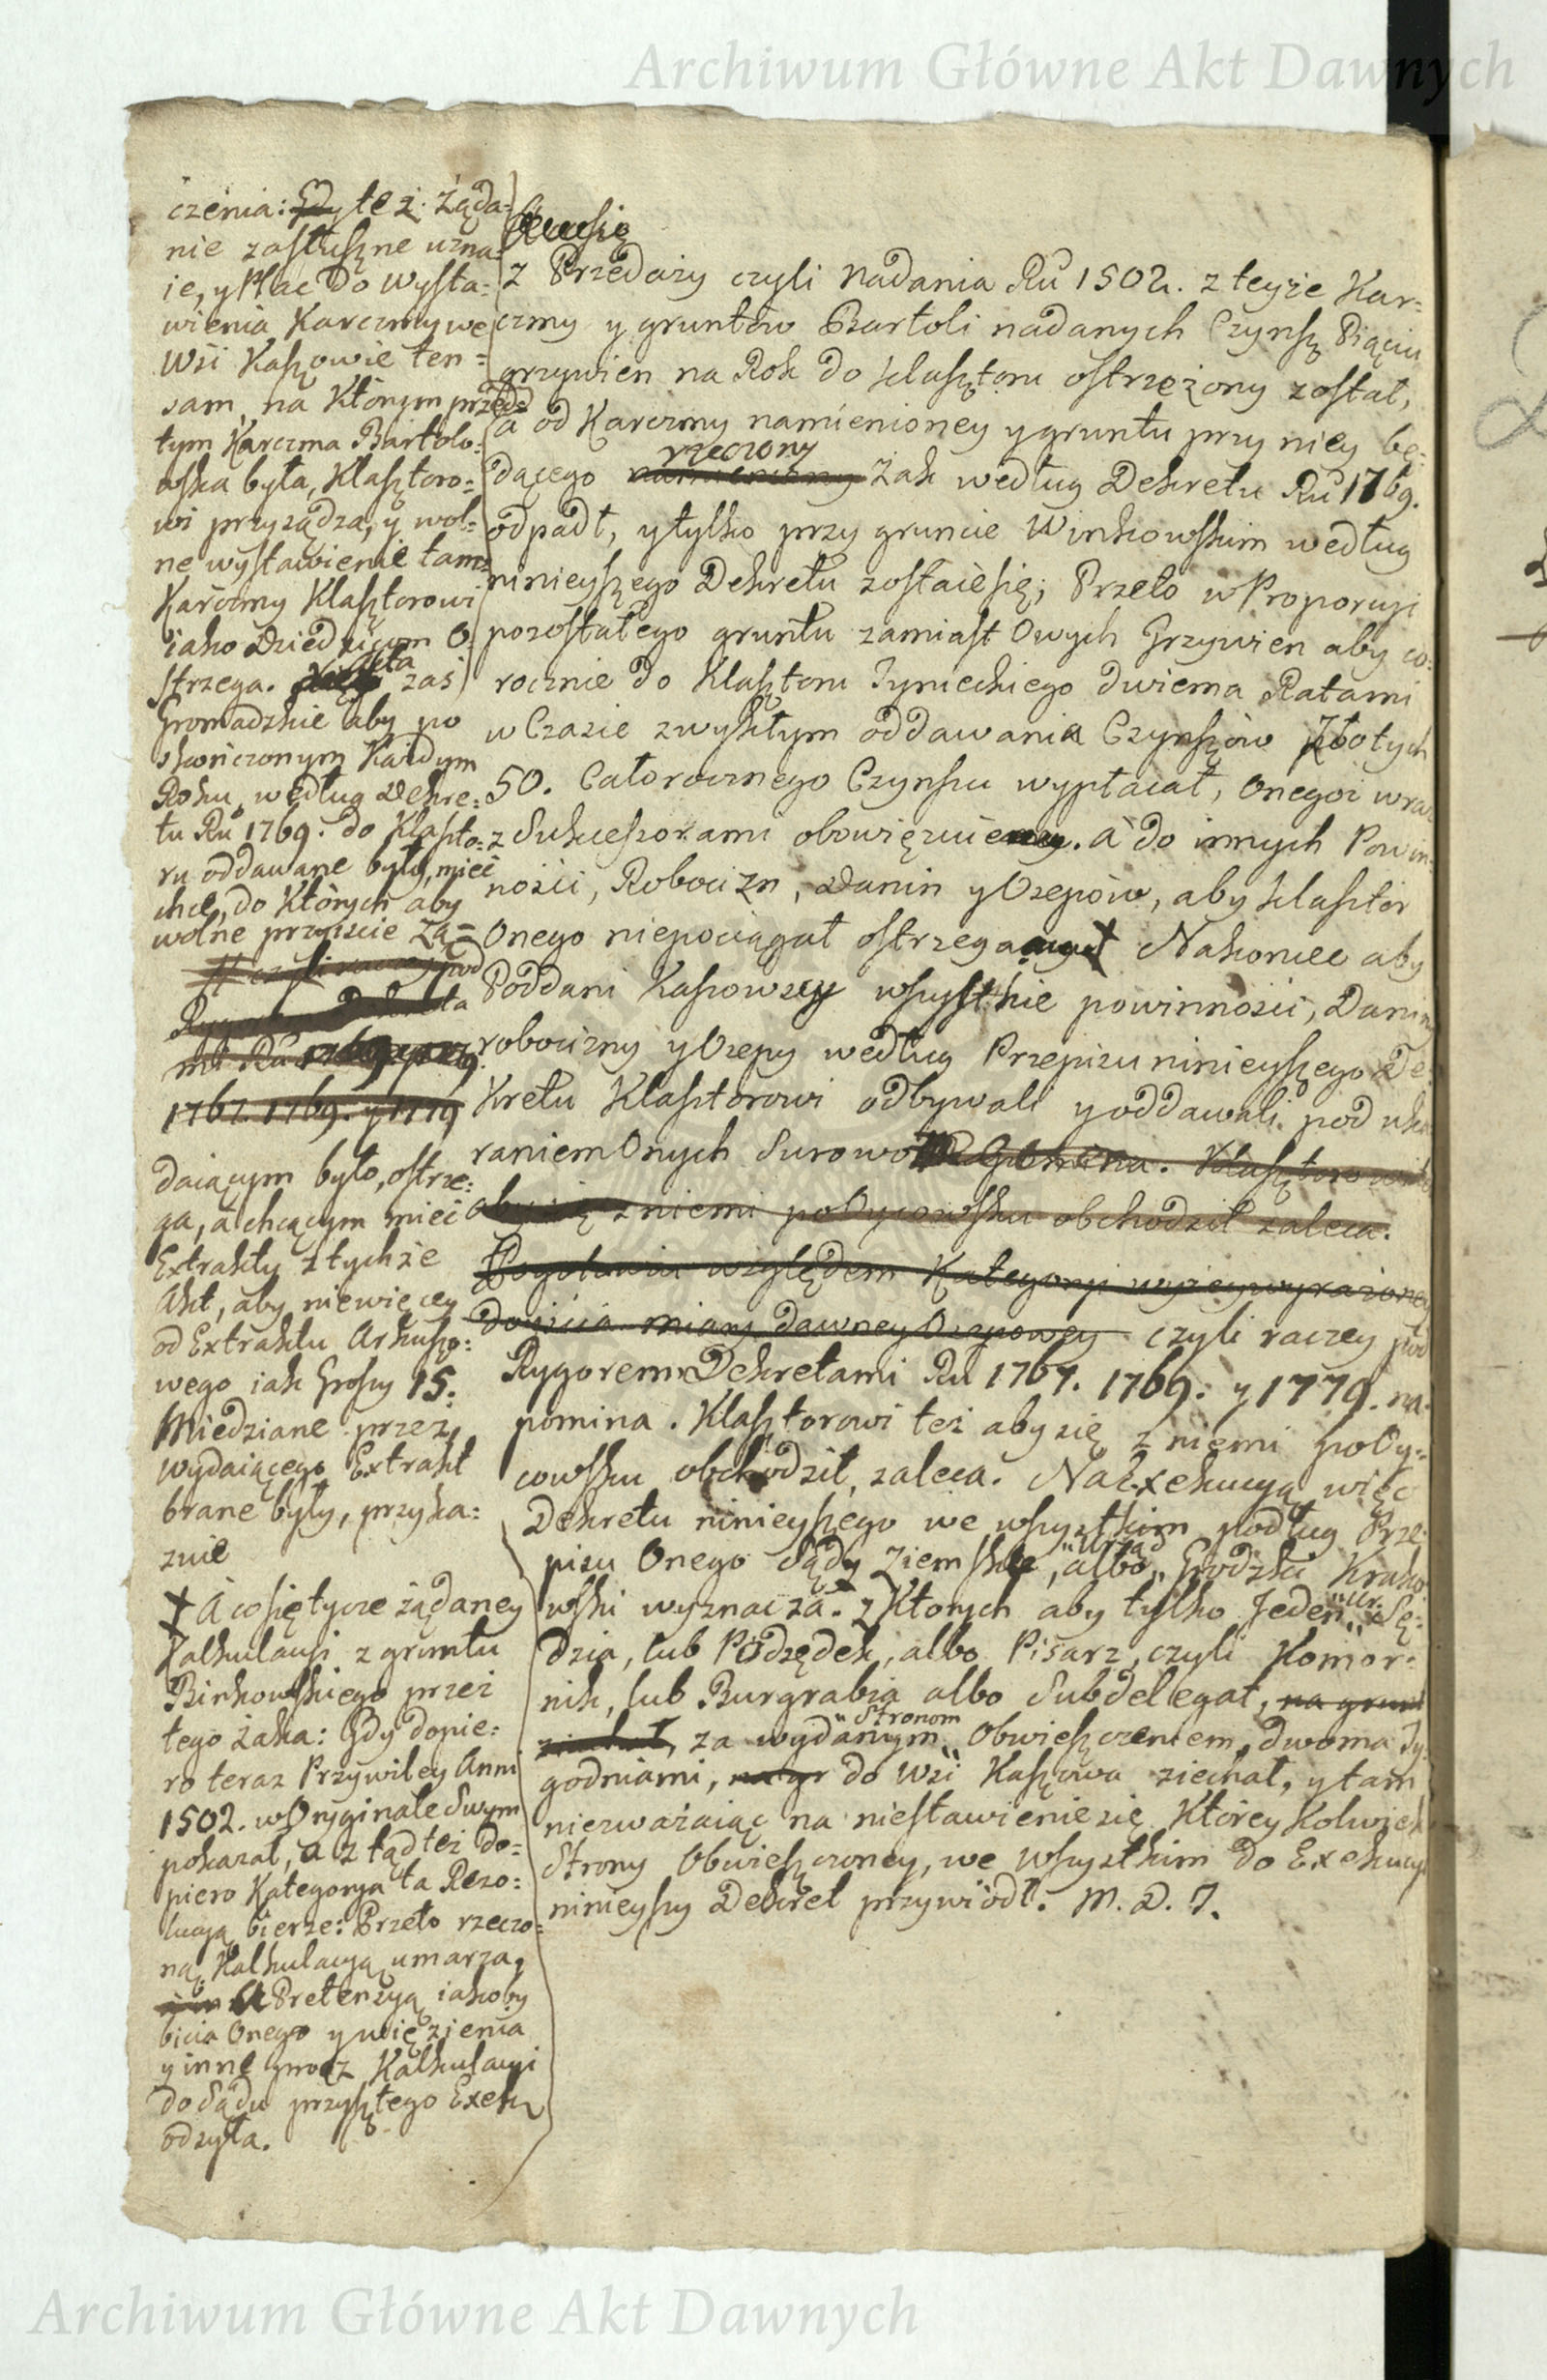 Archiwum Główne Akt Dawnych
czenia: Gdy też żąda=
nie za słuszne uzna=
ie, y Plac do wysta=
wienia Karczmy we
Wsi Kaszowie ten=
sam, na Którym przed
tym Karczma Bartolo=
wska była, Klasztoro=
wi przysądza, y wol=
ne wystawienie tam
Karczmy Klasztorowi
iako Dziedzicom o=
strzega. Akta zaś
Gromadzkie aby po
skończonym Każdym
Roku, według Dekre=
tu Ru 1769. do Klaszto=
ru oddawane były, mieć
chce, do Których aby
wolne przyiście żą=
czyli raczey pod
Rygorem Dekreta
mi Ru
1767. 1769. y 1779
daiącym było, ostrze=
ga, a chcącym mieć
Extrakty z tychże
Akt, aby niewięcey
od Extraktu Arkuszo=
wego iak Groszy 15.
Miedziane przez
wydaiącego Extrakt
brane były, przyka=
zuie
† A co się tycze żądaney
Kalkulacyi z gruntu
Binkowskiego przez
tego żaka: Gdy dopie=
ro teraz Przywiley Anni
1502. w Oryginale Swym
pokazał, a z tąd też do=
piero Kategorya ta Rezo=
lucyą bierze: Przeto rzeczo=
ną Kalkulacyą umarza,
a Pretensyą iakoby
bicia Onego y więzienia
y inne procz Kalkulacyi
do Sądu przyszłego Exek
odsyła.
się
z Przedaży czyli nadania Ru 1502. z teyże Kar=
czmy y gruntów Bartoli nadanych Czynsz Piąciu
grzywien na Rok do Klasztoru ostrzeżony został,
a od Karczmy namienioney y gruntu przy niey bę=
dącego namieniony rzeczony Żak według Dekretu Ru 1769.
odpadł, y tylko przy gruncie Winkowskim według
ninieyszego Dekretu zostaie się; Przeto w Proporcyi
pozostałego gruntu zamiast Owych Grzywien aby co=
rocznie do Klasztoru Tynieckiego dwiema Ratami
w Czasie zwykłym oddawania Czynszów Złotych
50. Całorocznego Czynszu wypłacał, Onegoż wraz
z Sukcessorami obowięzuie. a do innych Powin=
ności, Robocizn, Danin y Osepów, aby Klasztor
Onego niepociągał ostrzega † Nakoniec aby
Poddani Kaszowscy wszystkie powinności, Daniny
robocizny y Osepy według Przepisu ninieyszego De=
kretu Klasztorowi odbywali y oddawali pod uka
raniem Onych Surowo napomina. Klasztorowi
aby się z niemi po Oycowsku obchodził zaleca.
względem Kategoryi wyżey wyrażoney
Doyścia miary dawney Osepowey czyli raczey pod
Rygorem Dekretami Ru 1767. 1769. y 1779. na=
pomina. Klasztorowi też aby się z niemi po Oy=
cowsku obchodził, zaleca. Na Exekucyą więc
Dekretu ninieyszego we wszystkim podług Prze=
pisu Onego Sądy Ziemskie, albo Urząd Grodzki Krako
wski wyznacza. z Których aby tylko Jeden Ur. Sę=
dzia, lub Podsędek, albo Pisarz, czyli Komor=
nik, lub Burgrabia albo Subdelegat, na grunt
ziechał, za wydanym Stronom Obwieszczeniem, dwoma Ty=
godniami, na gr do Wsi Kaszowa ziechał, y tam
niezważaiąc na niestawienie się Którey Kolwiek
Strony Obwieszczoney, we wszystkim do Exekucyi
ninieyszy Dekret przywiodł. M. D. J.
Archiwum Główne Akt Dawnych